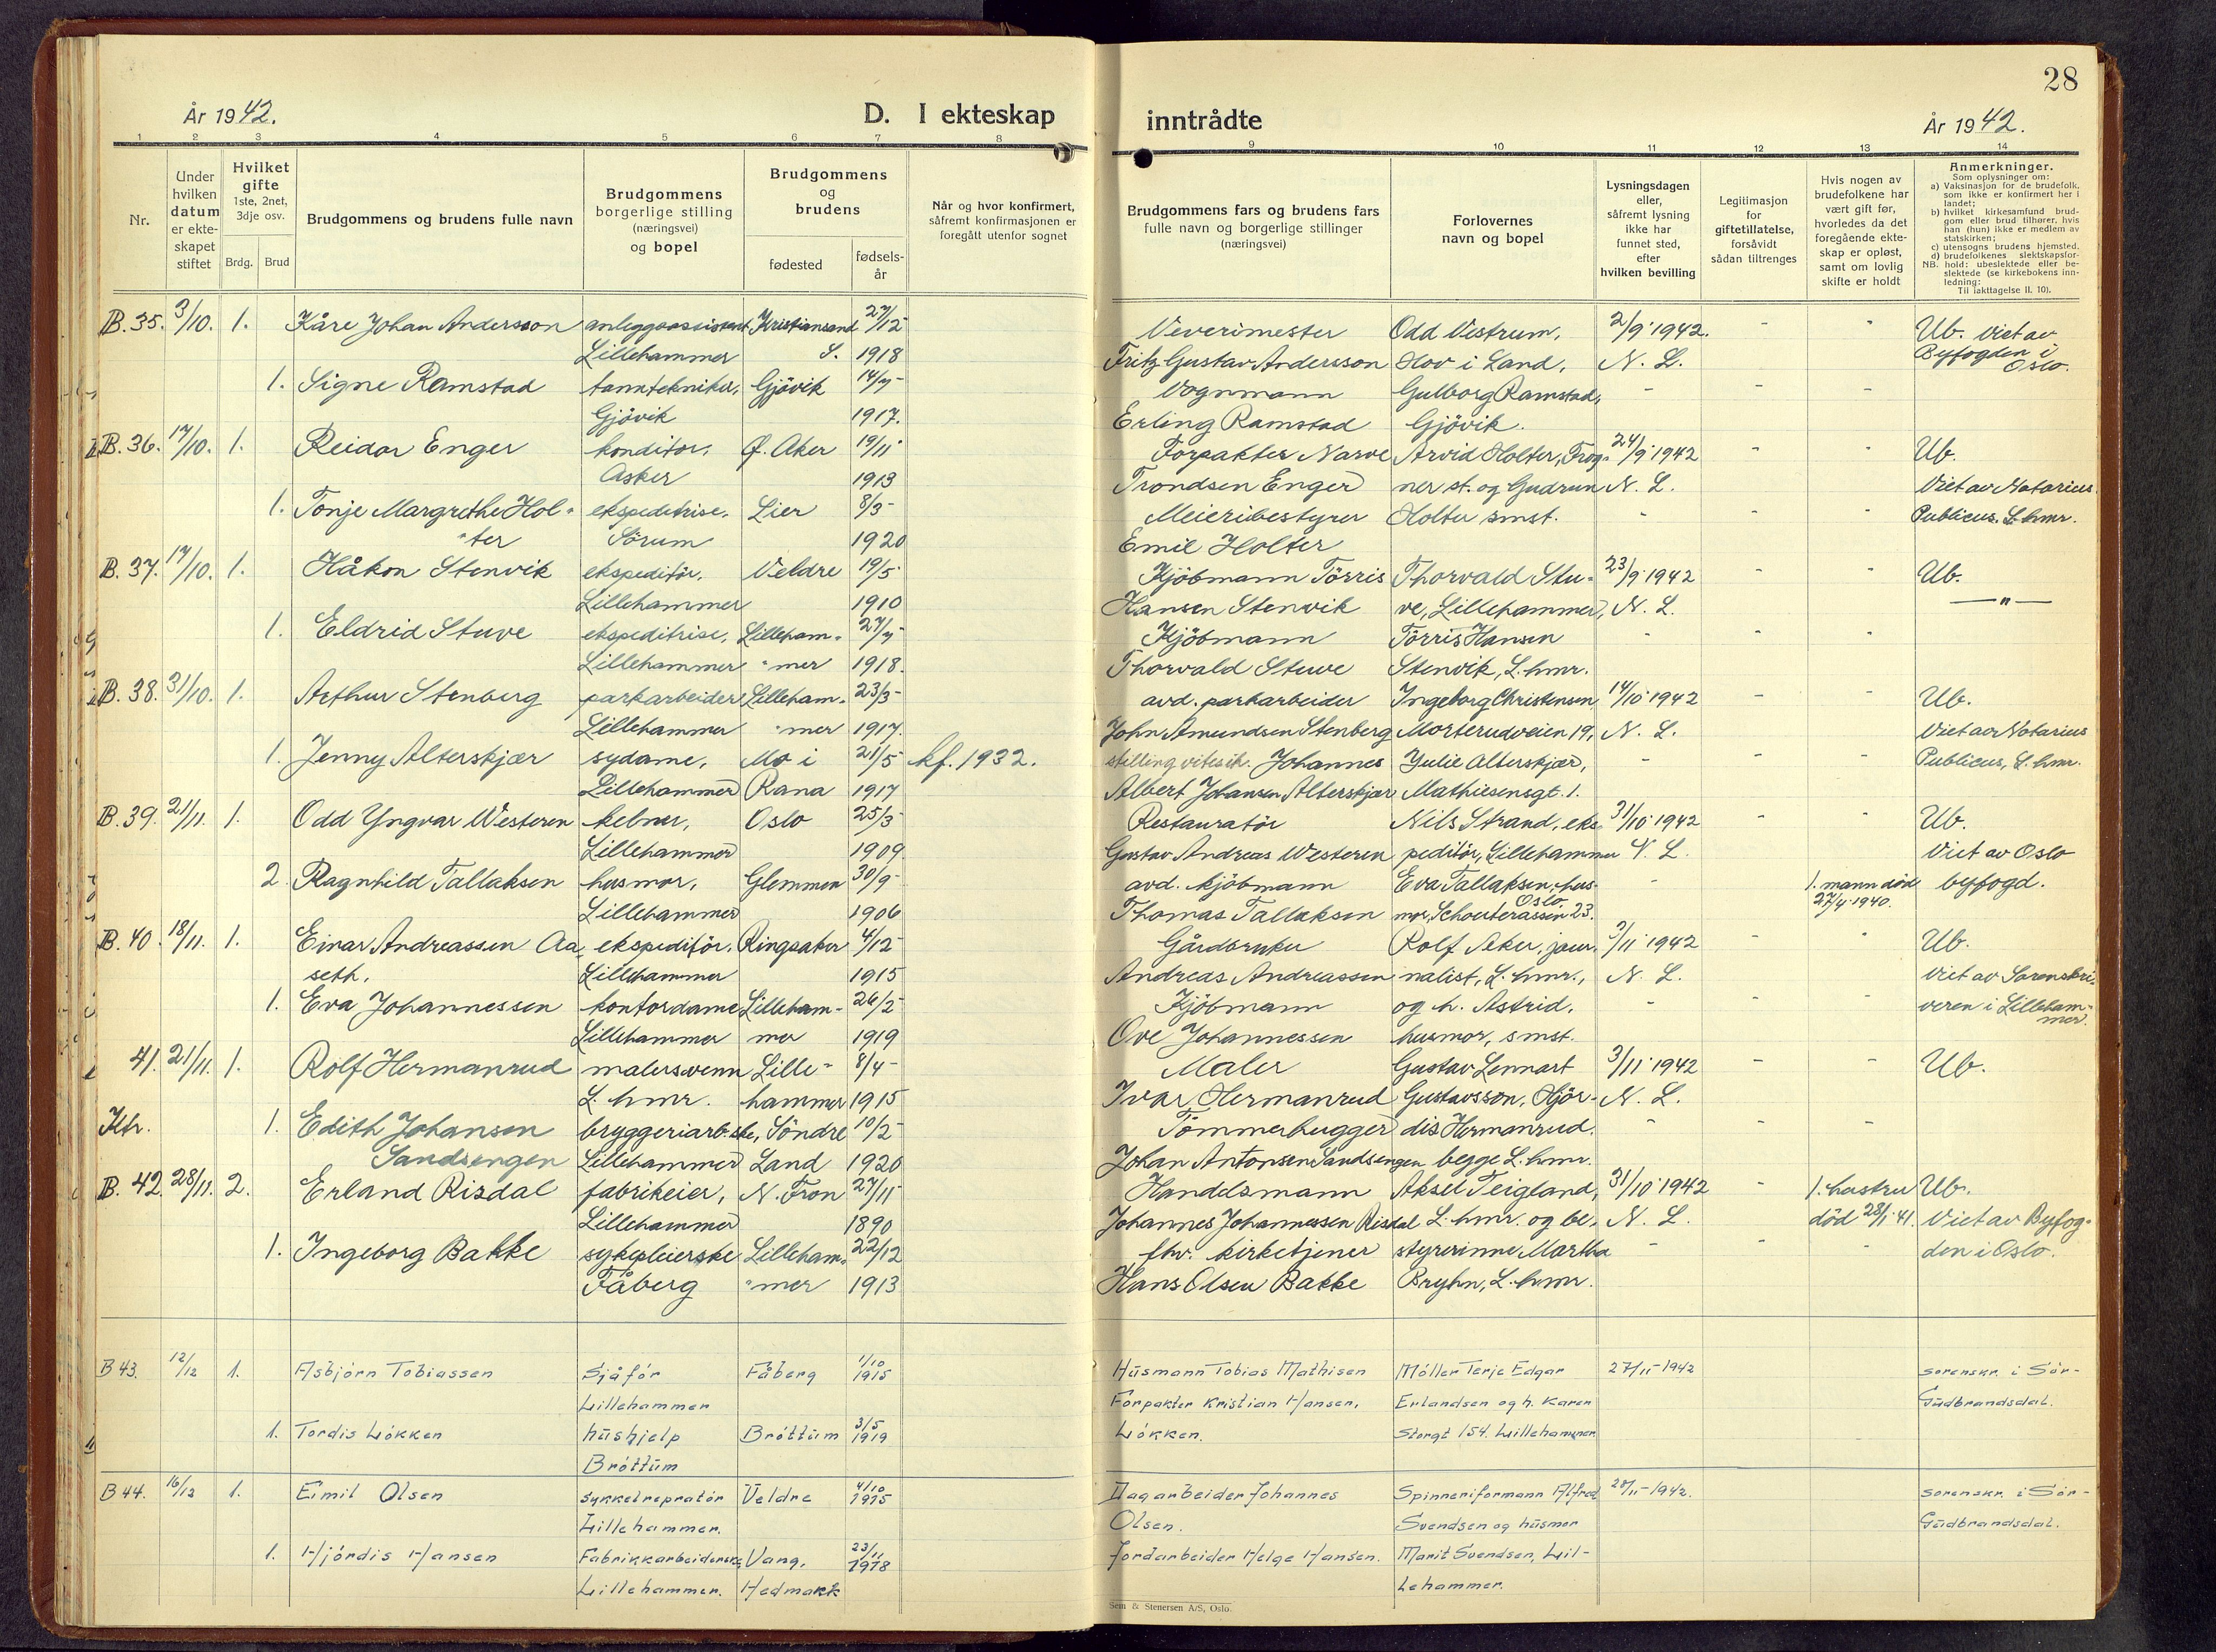 28
År 1942.
D. I ekteskap inntrådte
År 1942.
1 2 3 4 5 6 7 8 9 10 11 12 13 14
Nr.
Under hvilken datum er ekteskapet stiftet
Hvilket gifte 1ste, 2net, 3dje osv.
Brdg. Brud
Brudgommens og brudens fulle navn
Brudgommens borgerlige stilling (næringsvei) og bopel
Brudgommens og brudens
fødested
fødselsår
Når og hvor konfirmert, såfremt konfirmasjonen er foregått utenfor sognet
Brudgommens fars og brudens fars fulle navn og borgerlige stillinger (næringsvei)
Forlovernes navn og bopel
Lysningsdagen eller, såfremt lysning ikke har funnet sted, efter hvilken bevilling
Legitimasjon for giftetillatelse, forsåvidt sådan tiltrenges
Hvis nogen av brudefolkene har vært gift før, hvorledes da det foregående ekteskap er opløst, samt om lovlig skifte er holdt
Anmerkninger.
Som oplysninger om:
a) Vaksinasjon for de brudefolk, som ikke er konfirmert her i landet;
b) hvilket kirkesamfund brudgom eller brud tilhører, hvis han (hun) ikke er medlem av statskirken;
c) utensogns brudens hjemsted.
d) brudefolkenes slektskapsforhold: ubeslektede eller beslektede (se kirkebokens innledning:
NB.
Til iakttagelse II. 10).
B. 35. 3/10. 1. Kåre Johan Andersson anleggsassistent Kristiansand 27/12 Veverimester Odd Vestrum, 2/9 1942. - - Ub. Viet av
Lillehammer S. 1918 Fritz Gustav Andersson Hov i Land, N. L. Byfogden i
1. Signe Ramstad tanntekniker, Gjövik 14/7 Vognmann Gulborg Ramstad, - - - Oslo.
Gjövik 1917. Erling Ramstad Gjövik.
B. 36. 17/10. 1. Reidar Enger konditor, Ø. Aker 19/11 Forpakter Narve Arvid Holter, Frog- 24/9 1942 - - Ub.
Asker 1913 Trondsen Enger ner st. og Gudrun N. L. Viet av Notarius
1. Tonje Margrethe Hol- ekspeditrise, Lier 8/3 Meieribestyrer Holter smst. - - - Publicus, L.hmr.
ter Sörum 1920 Emil Holter
B. 37. 17/10. 1. Håkon Stenvik ekspeditör, Veldre 19/5 Kjöbmann Törris Thorvald Stu- 23/9 1942 - - Ub.
Lillehammer 1910 Hansen Stenvik ve, Lillehammer, N. L. —"—
1. Eldrid Stuve ekspeditrise, Lilleham- 27/7 Kjöbmann Törris Hansen - - -
Lillehammer mer 1918. Thorvald Stuve Stenvik, L.hmr.
B. 38. 31/10. 1. Arthur Stenberg parkarbeider Lilleham- 23/3 avd. parkarbeider Ingeborg Christensen 14/10 1942 - - Ub.
Lillehammer mer 1917. John Amundsen Stenberg Morterudveien 19, N. L. Viet av Notarius
1. Jenny Alterskjær sydame, Mo i 21/5 kf. 1932. stilling vites ik. Johannes Julie Alterskjær, - - - Publicus, L.hmr.
Lillehammer Rana 1917 Albert Johansen Alterskjær Mathiesensgt. 1.
B. 39. 21/11. 1. Odd Yngvar Westeren kelner, Oslo 25/3 Restauratör Nils Strand, eks- 31/10 1942 - - Ub.
Lillehammer 1909. Gustav Andreas Westeren peditör, Lillehammer N. L. Viet av Oslo
2. Ragnhild Tallaksen husmor, Glemmen 30/9 avd. kjöbmann Eva Tallaksen, hus- - 1. mann död byfogd.
Lillehammer 1906 Thomas Tallaksen mor, Schouterassen 23. Oslo. 27/4 1940.
B. 40. 18/11. 1. Einar Andreassen Aa- ekspeditör, Ringsaker 4/12 Gårdbruker Rolf Aker, jour- 3/11 1942 - - Ub.
seth. Lillehammer 1915 Andreas Andreassen nalist, L.hmr., N. L. Viet av Sorenskri-
1. Eva Johannessen kontordame Lilleham- 26/2 Kjöbmann og h. Astrid, - - - veren i Lilleham-
Lillehammer mer 1919 Ove Johannessen husmor, smst. mer.
41. 21/11. 1. Rolf Hermanrud malersvenn Lille- 8/4 Maler Gustav Lennart 3/11 1942 - - Ub.
L.hmr. hammer 1915 Ivar Hermanrud Gustavsson, Hjör- N. L.
Kh. 1. Edith Johansen bryggeriarb.ske, Söndre 10/2 Tömmerhugger dis Hermanrud. - - -
Sandsengen Lillehammer Land 1920 Johan Antonsen Sandsengen begge L.hmr.
B. 42. 28/11. 2. Erland Risdal fabrikeier, N. Fron 27/11 Handelsmann Aksel Teigland, 31/10 1942 - 1. hustru Ub.
Lillehammer 1890 Johannes Johannessen Risdal L.hmr. og be- N. L. död 28/1 41. Viet av Byfog-
1. Ingeborg Bakke sykepleierske Lilleham- 22/12 fhv. kirketjener styrerinne Martha - - - den i Oslo.
Fåberg mer 1913 Hans Olsen Bakke Bryhn, L.hmr.
B 43. 12/12 1. Asbjörn Tobiassen Sjåför Fåberg 1/10 1915 Husmann Tobias Mathisen Möller Terje Edgar 27/11-1942 sorenskr. i Sör-
Lillehammer Forpakter Kristian Hansen, Erlandsen og h. Karen Gudbrandsdal.
1. Tordis Lökken hushjelp Bröttum 3/5 1919 Lökken. Storgt 154. Lillehammer
Bröttum
B 44. 16/12 1. Eimil Olsen Sykkelrepratör Veldre 4/10 1915 Dagarbeider Johannes Spinneriformann Alfred 28/11-1942. sorenskr. i Sör-
Lillehammer. Olsen. Svendsen og husmor Gudbrandsdal.
1. Hjördis Hansen Fabrikkarbeiderske Vang, 23/11 1918 Jordarbeider Helge Hansen. Marit Svendsen, Lil-
Lillehammer. Hedmark lehammer.
Sem & Stenersen A/S, Oslo.